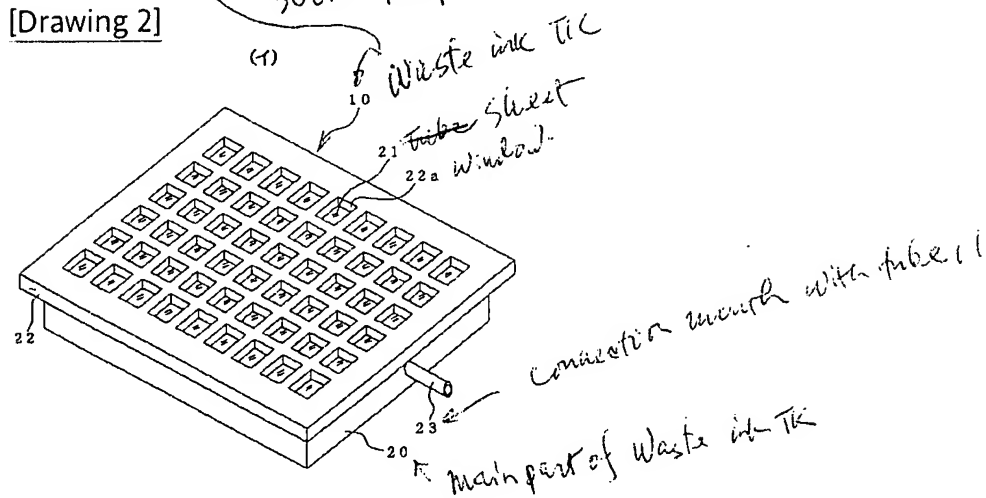 [Drawing 2]
(イ)
10 Waste ink TK
21 Tube Sheet
22a window
connection mouth with tube 11
22
23
20 main part of Waste ink TK